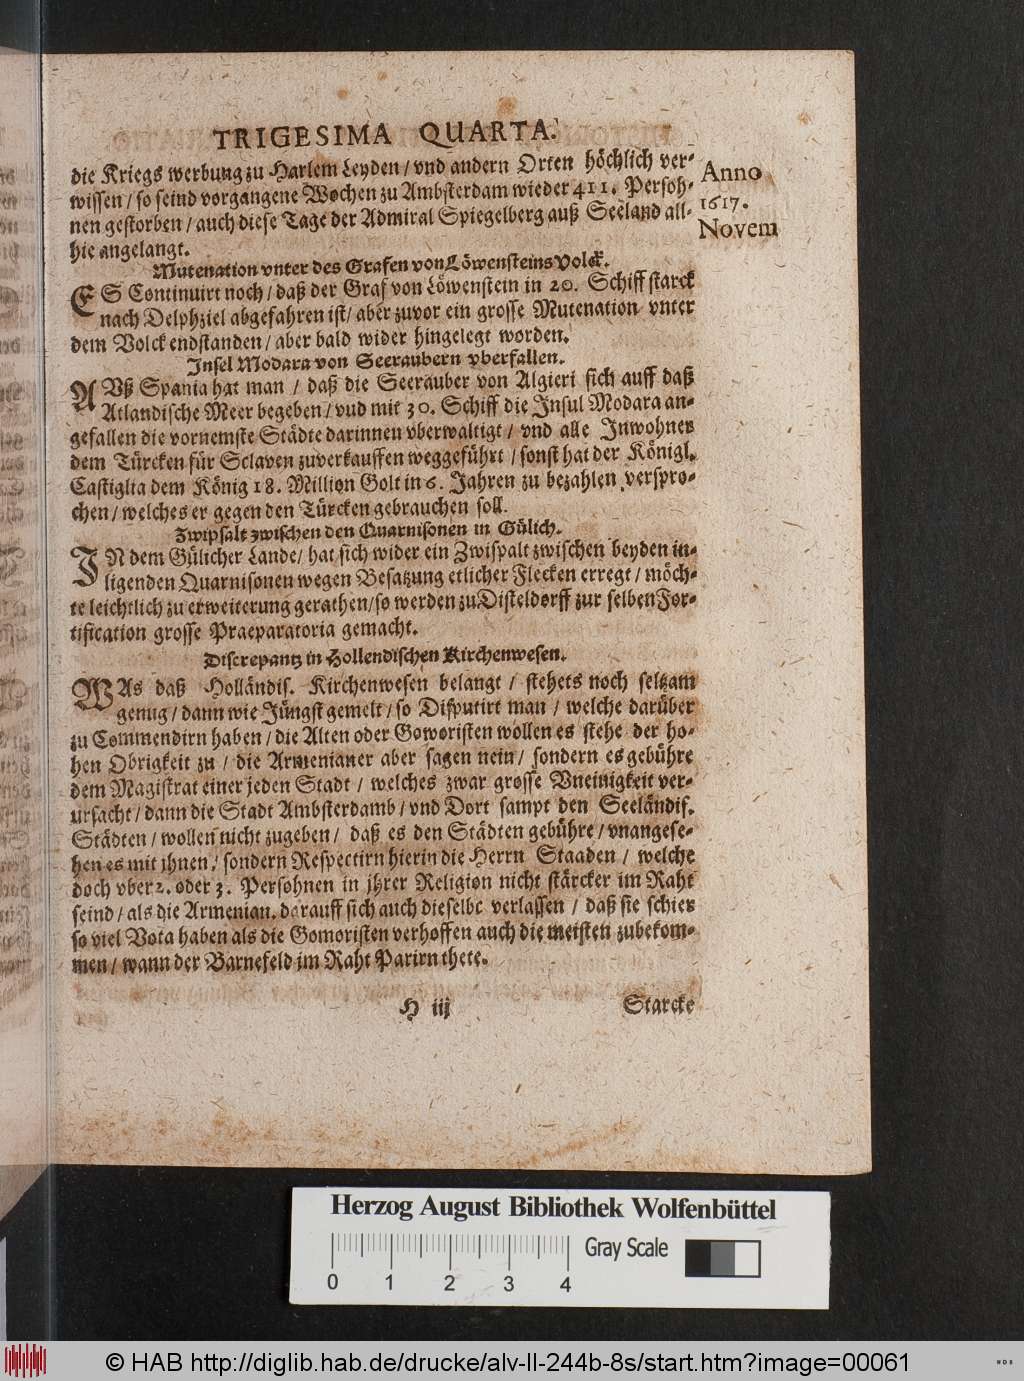 TRIGESIMA QUARTA.
die Kriegs werbung zu Harlem Leyden / vnd andern Orten höchlich ver-
wissen / so seind vorgangene Wochen zu Ambsterdam wieder 411. Persoh-
nen gestorben / auch diese Tage der Admiral Spiegelberg auß Seeland all-
hie angelangt.
Anno
1617.
Novem
Mutenation vnter des Grafen von Löwensteins Volck.
ES Continuirt noch / daß der Graf von Löwenstein in 20. Schiff starck
nach Delphziel abgefahren ist / aber zuvor ein grosse Mutenation vnter
dem Volck endstanden / aber bald wider hingelegt worden.
Insel Modara von Seeraubern vberfallen.
AVß Spania hat man / daß die Seerauber von Algieri sich auff daß
Atlandische Meer begeben / vud mit 30. Schiff die Insul Modara an-
gefallen die vornemste Städte darinnen vberwaltigt / vnd alle Inwohner
dem Türcken für Sclaven zuverkauffen weggeführt / sonst hat der Königl.
Castiglia dem König 18. Million Golt in 6. Jahren zu bezahlen verspro-
chen / welches er gegen den Türcken gebrauchen soll.
Zwipsalt zwischen den Quarnisonen in Gülich.
IN dem Gülicher Lande / hat sich wider ein Zwispalt zwischen beyden in-
ligenden Quarnisonen wegen Besatzung etlicher Flecken erregt / möch-
te leichtlich zu erweiterung gerathen / so werden zu Disteldorff zur selben For-
tification grosse Praeparatoria gemacht.
Discrepantz in Hollendischen Kirchenwesen.
WAs daß Holländis. Kirchenwesen belangt / stehets noch seltzam
genug / dann wie Jüngst gemelt / so Disputirt man / welche darüber
zu Commendirn haben / die Alten oder Goworisten wollen es stehe der ho-
hen Obrigkeit zu / die Armenianer aber sagen nein / sondern es gebühre
dem Magistrat einer jeden Stadt / welches zwar grosse Vneinigkeit ver-
ursacht / dann die Stadt Ambsterdamb / vnd Dort sampt den Seeländis.
Städten / wollen nicht zugeben / daß es den Städten gebühre / vnangese-
hen es mit jhnen / sondern Respectirn hierin die Herrn Staaden / welche
doch vber 2. oder 3. Persohnen in jhrer Religion nicht stärcker im Raht
seind / als die Armenian. darauff sich auch dieselbe verlassen / daß sie schier
so viel Vota haben als die Gomoristen verhoffen auch die meisten zubekom-
men / wann der Barnefeld im Raht Parirn thete.
H iij
Starcke
Herzog August Bibliothek Wolfenbüttel
0 1 2 3 4
Gray Scale
© HAB http://diglib.hab.de/drucke/alv-ll-244b-8s/start.htm?image=00061